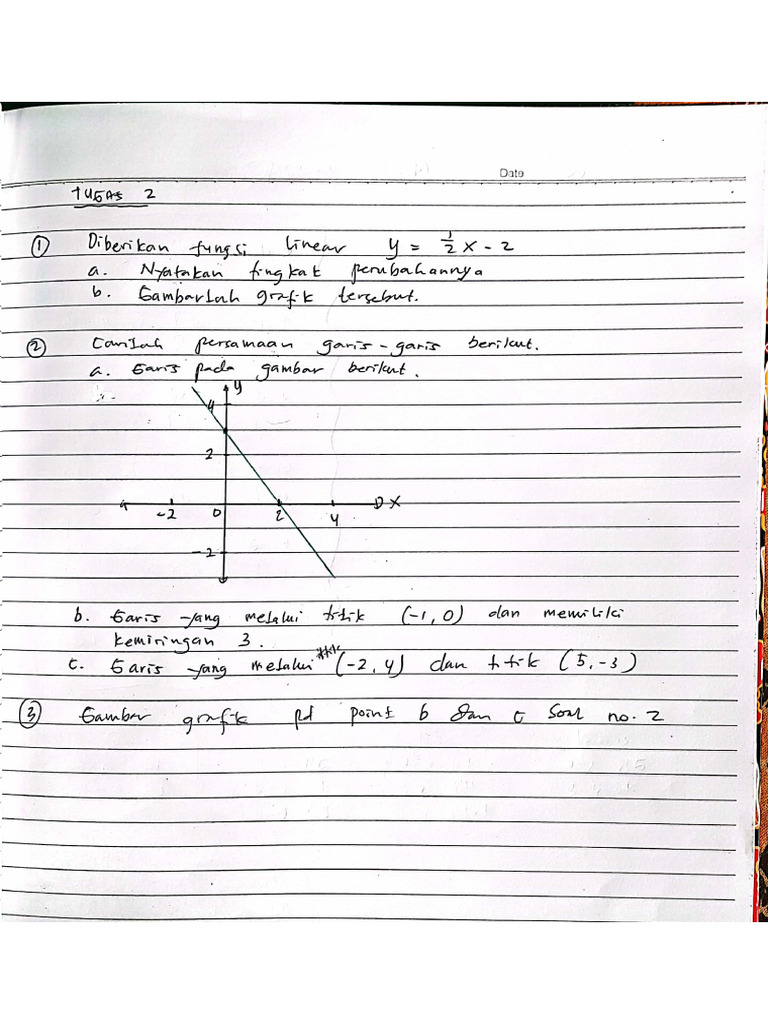 Date
TUGAS 2
① Diberikan fungsi linear y = 1/2 x - 2
a. Nyatakan tingkat perubahannya
b. Gambarlah grafik tersebut.
② Carilah persamaan garis-garis berikut.
a. Garis pada gambar berikut.
y
4
2
-2 0 2 4 X
-2
b. Garis yang melalui titik (-1, 0) dan memiliki
kemiringan 3.
c. Garis yang melalui titik (-2, 4) dan titik (5, -3)
③ Gambar grafik pd point b dan c Soal no. 2